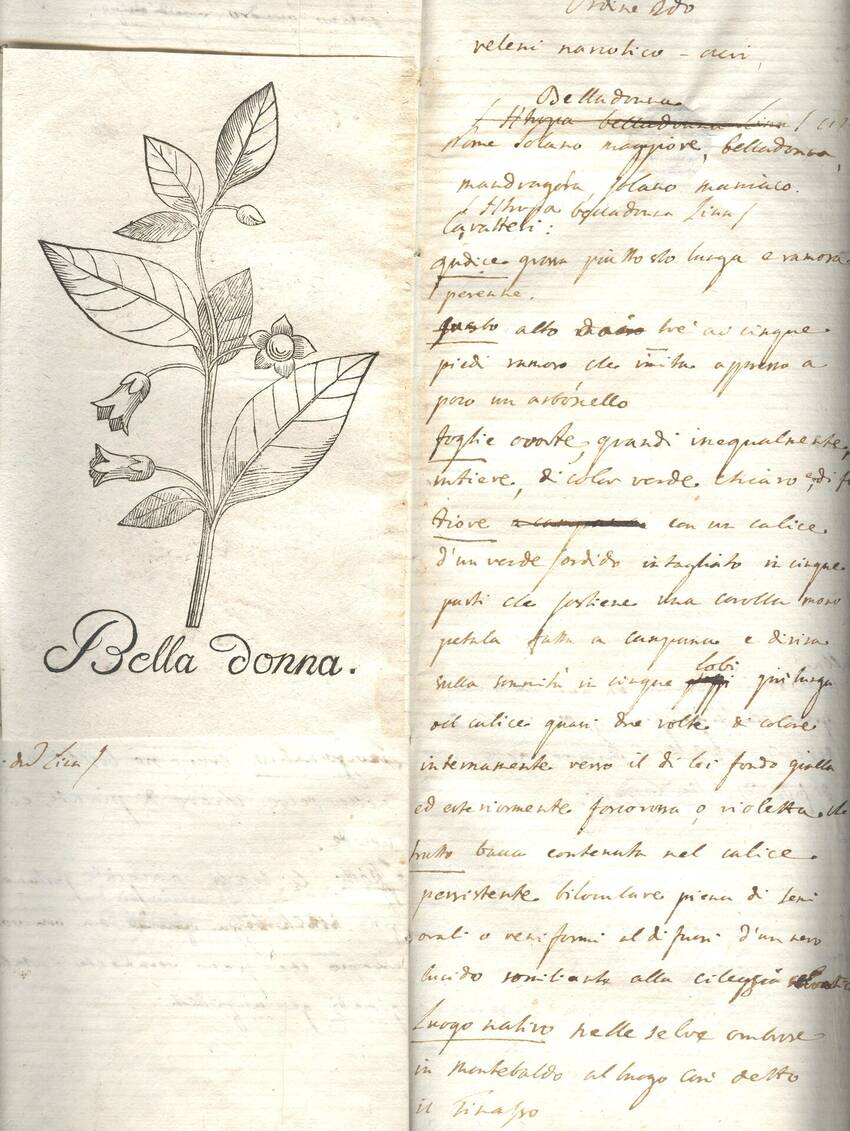 Bella donna.
Ordine 2do
veleni narcotico - acri,
Belladonna
Atropa belladonna Linn
Nome Solano maggiore, belladonna,
mandragora, solano maniaco.
Atropa belladonna Linn
Caratteri:
grossa piuttosto lunga e ramosa
perenne.
alto tre ai cinque
piedi ramoso che imita appresso a
poco un arboscello
foglie ovate, grandi inegualmente,
intiere, di color verde chiaro e di
fiore a campana con un calice
d'un verde sordido intagliato in cinque
parti che sostiene una corolla mono
petala fatta a campana e divisa
sulla sommità in cinque lobi più lunga
del calice quasi due volte di colore
internamente verso il di lei fondo gialla
ed esteriormente foscorossa o violetta
frutto bacca contenuta nel calice
persistente biloculare piena di semi
ovali o reniformi al di fuori d'un nero
lucido somiliante alla cilegia
Luogo nativo nelle selve ombrose
in montebaldo al luogo così detto
il
Linn